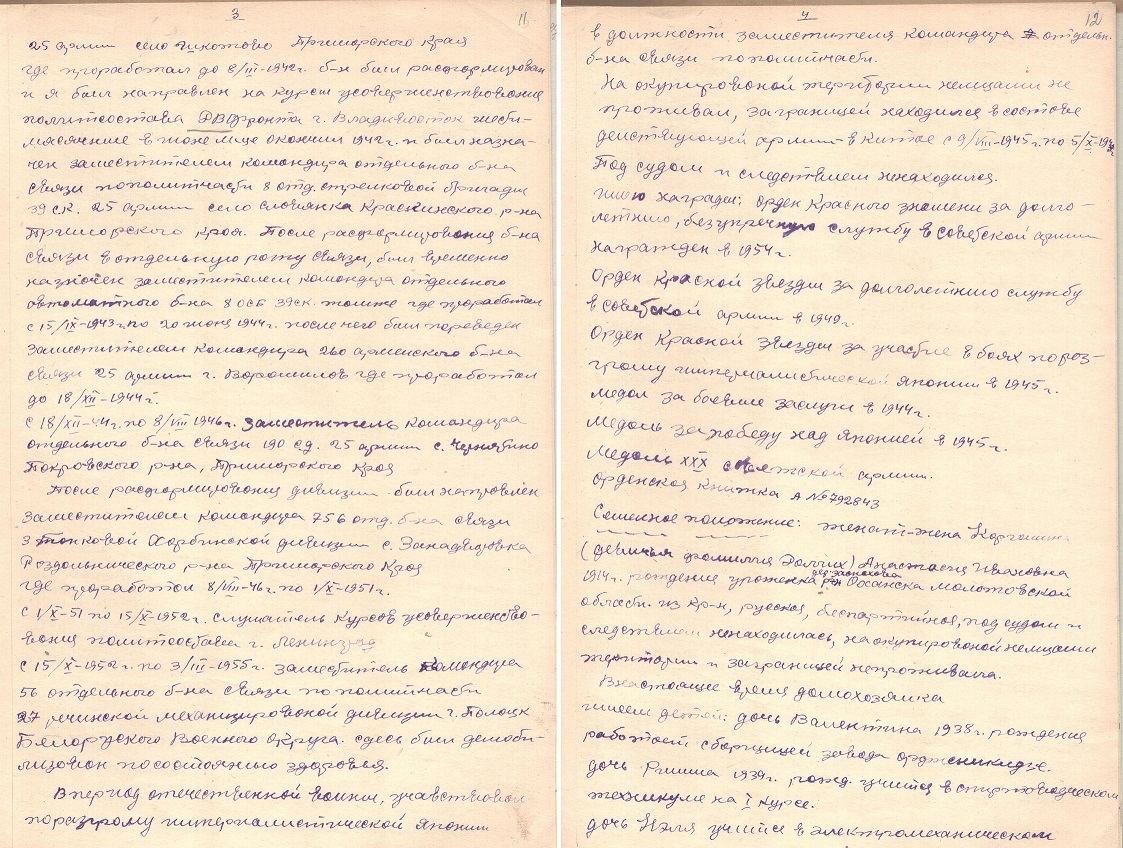 3
11
25 армии село Шкотово Приморского Края
где проработал до 8/III-1942г. б-н был расформирован
и я был направлен на курсы усовершенствования
политсостава ДВФронта г. Владивосток шести-
месячные в том же м-це окончил 1942г. и был назна-
чен заместителем командира отдельного б-на
связи пополитчасти 8 отд. стрелковой бригады
39 с.к. 25 армии село Славянка Краскинского р-на
Приморского края. После расформирования б-на
связи в отдельную роту связи, был временно
назначен заместителем командира отдельного
автоматного б-на 8 осб 39ск. томже где проработал
с 15/IX-1943г. по 20 июня 1944г. после чего был переведен
Заместителем командира 260 армейского б-на
связи 25 армии г. Ворошилов где проработал
до 18/XII-1944г.
с 18/XII-44г. по 8/VIII 1946г. Заместитель командира
отдельного б-на связи 190 сд. 25 армии с. Чернятино
Покровского р-на, Приморского края
После расформирования дивизии был направлен
Заместителем командира 756 отд. б-на связи
3 танковой Харбинской дивизии с. Занадворовка
Раздольнического р-на Приморского Края
где проработал 8/VIII-46г. по 1/X-1951г.
с 1/X-51 по 15/X-1952г. слушатель курсов усовершенство-
вания политсостава г. Ленинград
с 15/X-1952г. по 3/III-1955г. Заместитель командира
56 отдельного б-на связи по политчасти
27 речинской механизированой дивизии г. Полоцк
Белорусского Военного округа. сдесь был демоби-
лизован посостоянию здоровья.
В период отечественной войны, учавствовал
поразгрому империалистической Японии
4
12
в должности заместителя командира отдельн.
б-на связи пополитчасти.
На окупированой территории немцами не
проживал, заграницей находился в составе
действующей армии в Китае с 9/VIII-1945г. по 5/X-194
Под судом и следствием ненаходился.
имею награды: орден Красного знамени за долго-
летнию, безупречную службу в советской армии
награжден в 1954г.
Орден Красной звезды за долголетнию службу
в советской армии в 1949г.
Орден Красной звезды за участие в боях пораз-
грому империалистической Японии в 1945г.
медаль за боевые заслуги в 1944г.
Медаль за победу над Японией в 1945г.
Медаль XXX советской армии.
Орденская книжка А № 792843
Семейное положение: женат-жена Коргашина
(девичья фамилия) Анастасия Ивановна
1914г. рождения уроженка дер. р-на Осинска Молотовской
области. из кр-н, русская, беспартийная, под судом и
следствием ненаходилась, на окупированой немцами
территории и заграницей непроживала.
Внастоящее время домохозяика
имеем детей: дочь Валентина 1938г. рождения
работает сборщицей завода орджоникидзе.
дочь Римма 1939г. рожд. учится в
техникуме на I курсе.
дочь Нэля учится в электромеханическом